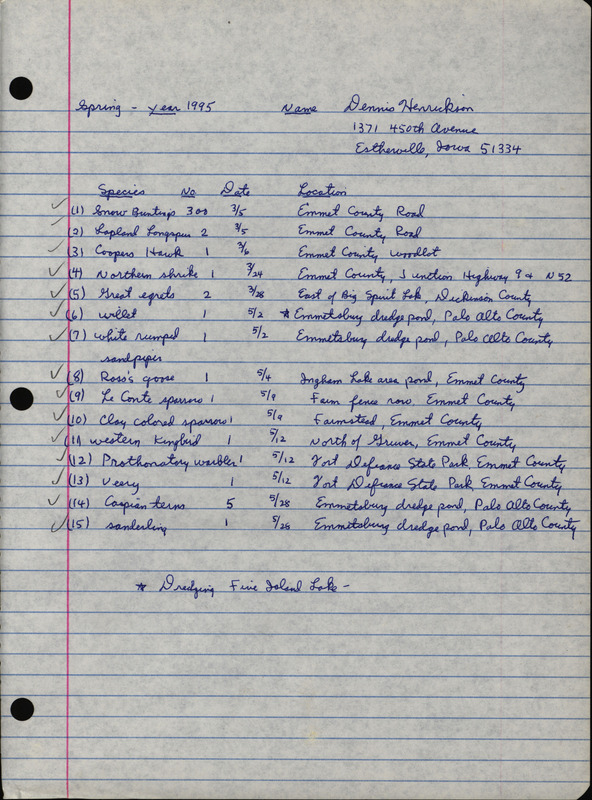 Spring - Year 1995 Name Dennis Henrickson
1371 450th Avenue
Estherville, Iowa 51334
Species No Date Location
(1) Snow Buntings 300 3/5 Emmet County Road
(2) Lapland Longspur 2 3/5 Emmet County Road
(3) Coopers Hawk 1 3/6 Emmet County woodlot
(4) Northern shrike 1 3/24 Emmet County, Junction Highway 9 + N52
(5) Great egrets 2 3/28 East of Big Spirit Lake, Dickinson County
(6) willet 1 5/2 * Emmetsburg dredge pond, Palo Alto County
(7) white rumped 1 5/2 Emmetsburg dredge pond, Palo Alto County
sandpiper
(8) Ross's goose 1 5/4 Ingham Lake area pond, Emmet County
(9) Le Conte sparrow 1 5/9 Farm fence row, Emmet County
(10) Clay colored sparrow 1 5/9 Farmstead, Emmet County
(11) western Kingbird 1 5/12 North of Gruver, Emmet County
(12) Prothonotary warbler 1 5/12 Fort Defiance State Park, Emmet County
(13) Veery 1 5/12 Fort Defiance State Park, Emmet County
(14) Caspian terns 5 5/28 Emmetsburg dredge pond, Palo Alto County
(15) sanderling 1 5/28 Emmetsburg dredge pond, Palo Alto County
* Dredging Five Island Lake -